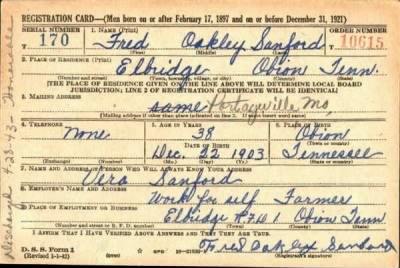 REGISTRATION CARD—(Men born on or after February 17, 1897 and on or before December 31, 1921)
SERIAL NUMBER 1. NAME (Print) ORDER NUMBER
T 170 Fred Oakley Sanford 10615
(First) (Middle) (Last)
2. PLACE OF RESIDENCE (Print)
Elbridge Obion Tenn.
(Number and street) (Town, township, village, or city) (County) (State)
[THE PLACE OF RESIDENCE GIVEN ON THE LINE ABOVE WILL DETERMINE LOCAL BOARD
JURISDICTION; LINE 2 OF REGISTRATION CERTIFICATE WILL BE IDENTICAL]
3. MAILING ADDRESS
same Portageville, Mo,
[Mailing address if other than place indicated on line 2. If same insert word same]
4. TELEPHONE 5. AGE IN YEARS 6. PLACE OF BIRTH
None 38 Obion
DATE OF BIRTH (Town or county)
Dec. 22 1903 Tennessee
(Exchange) (Number) (Mo.) (Day) (Yr.) (State or country)
7. NAME AND ADDRESS OF PERSON WHO WILL ALWAYS KNOW YOUR ADDRESS
Sanford
8. EMPLOYER'S NAME AND ADDRESS
Work for self Farmer
9. PLACE OF EMPLOYMENT OR BUSINESS
Elbridge Obion Tenn
(Number and street or R. F. D. number) (Town) (County) (State)
I AFFIRM THAT I HAVE VERIFIED ABOVE ANSWERS AND THAT THEY ARE TRUE.
D. S. S. Form 1
(Revised 1-1-42) (over)
Fred Oakley Sanford
(Registrant's signature)
Discharged 9-23-43- Honorable